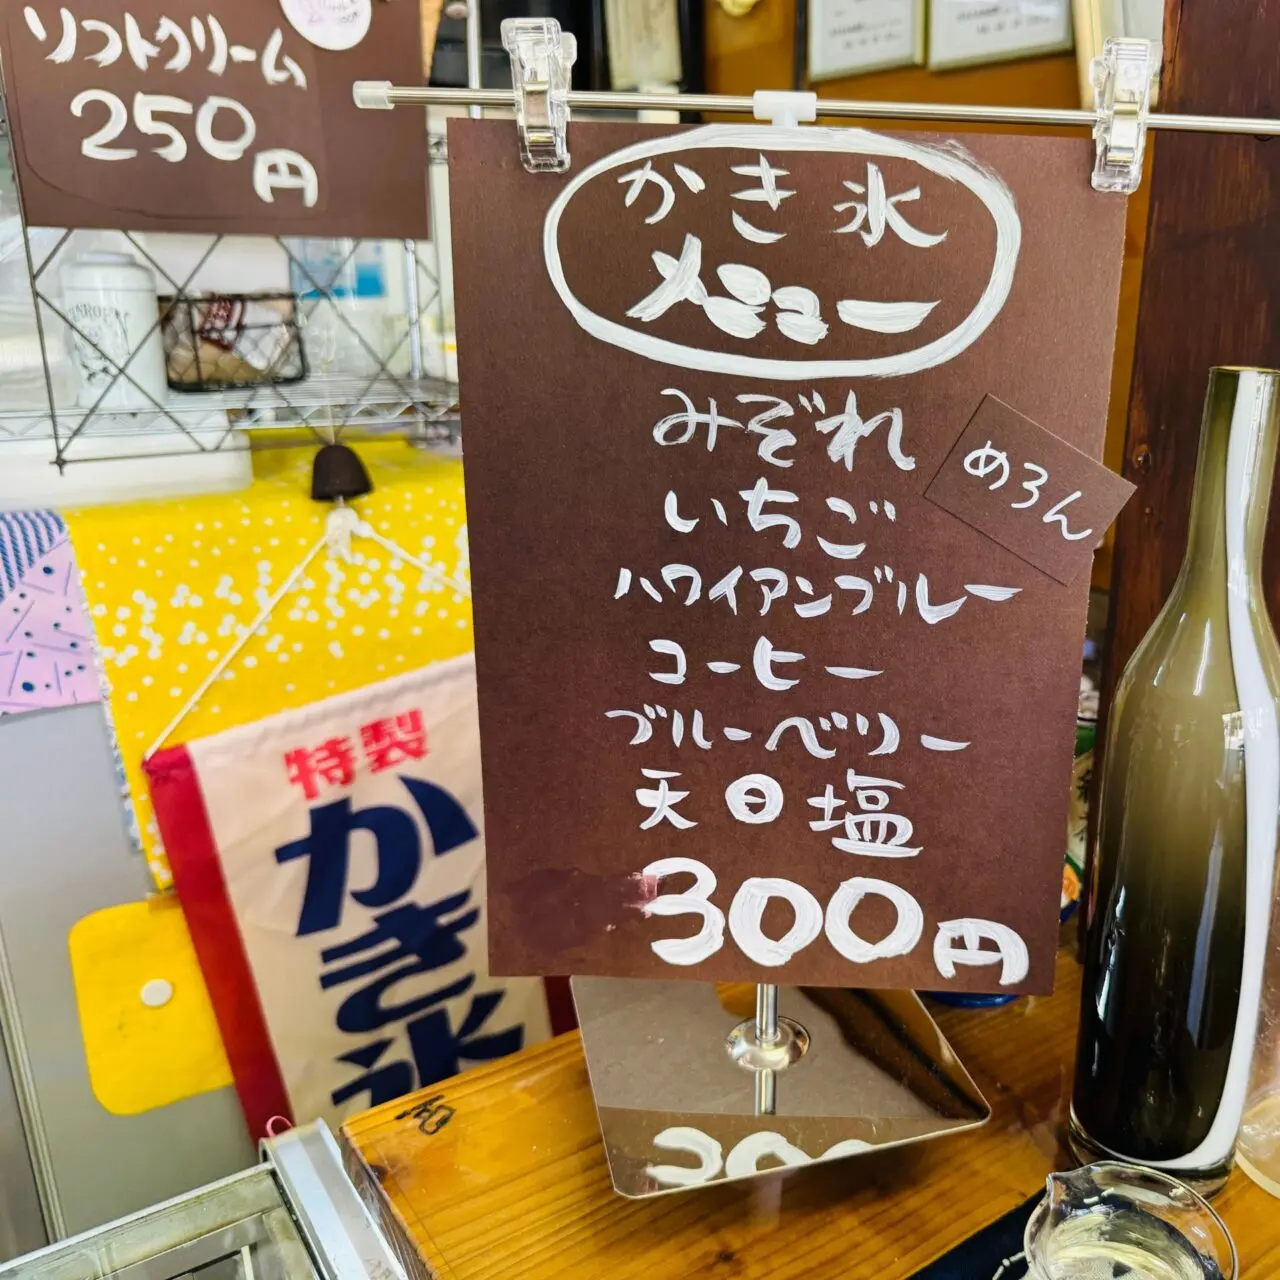 ソフトクリーム
250円
かき氷
メニュー
みぞれ
いちご
めろん
ハワイアンブルー
コーヒー
ブルーベリー
天日塩
300円
特製
かき氷